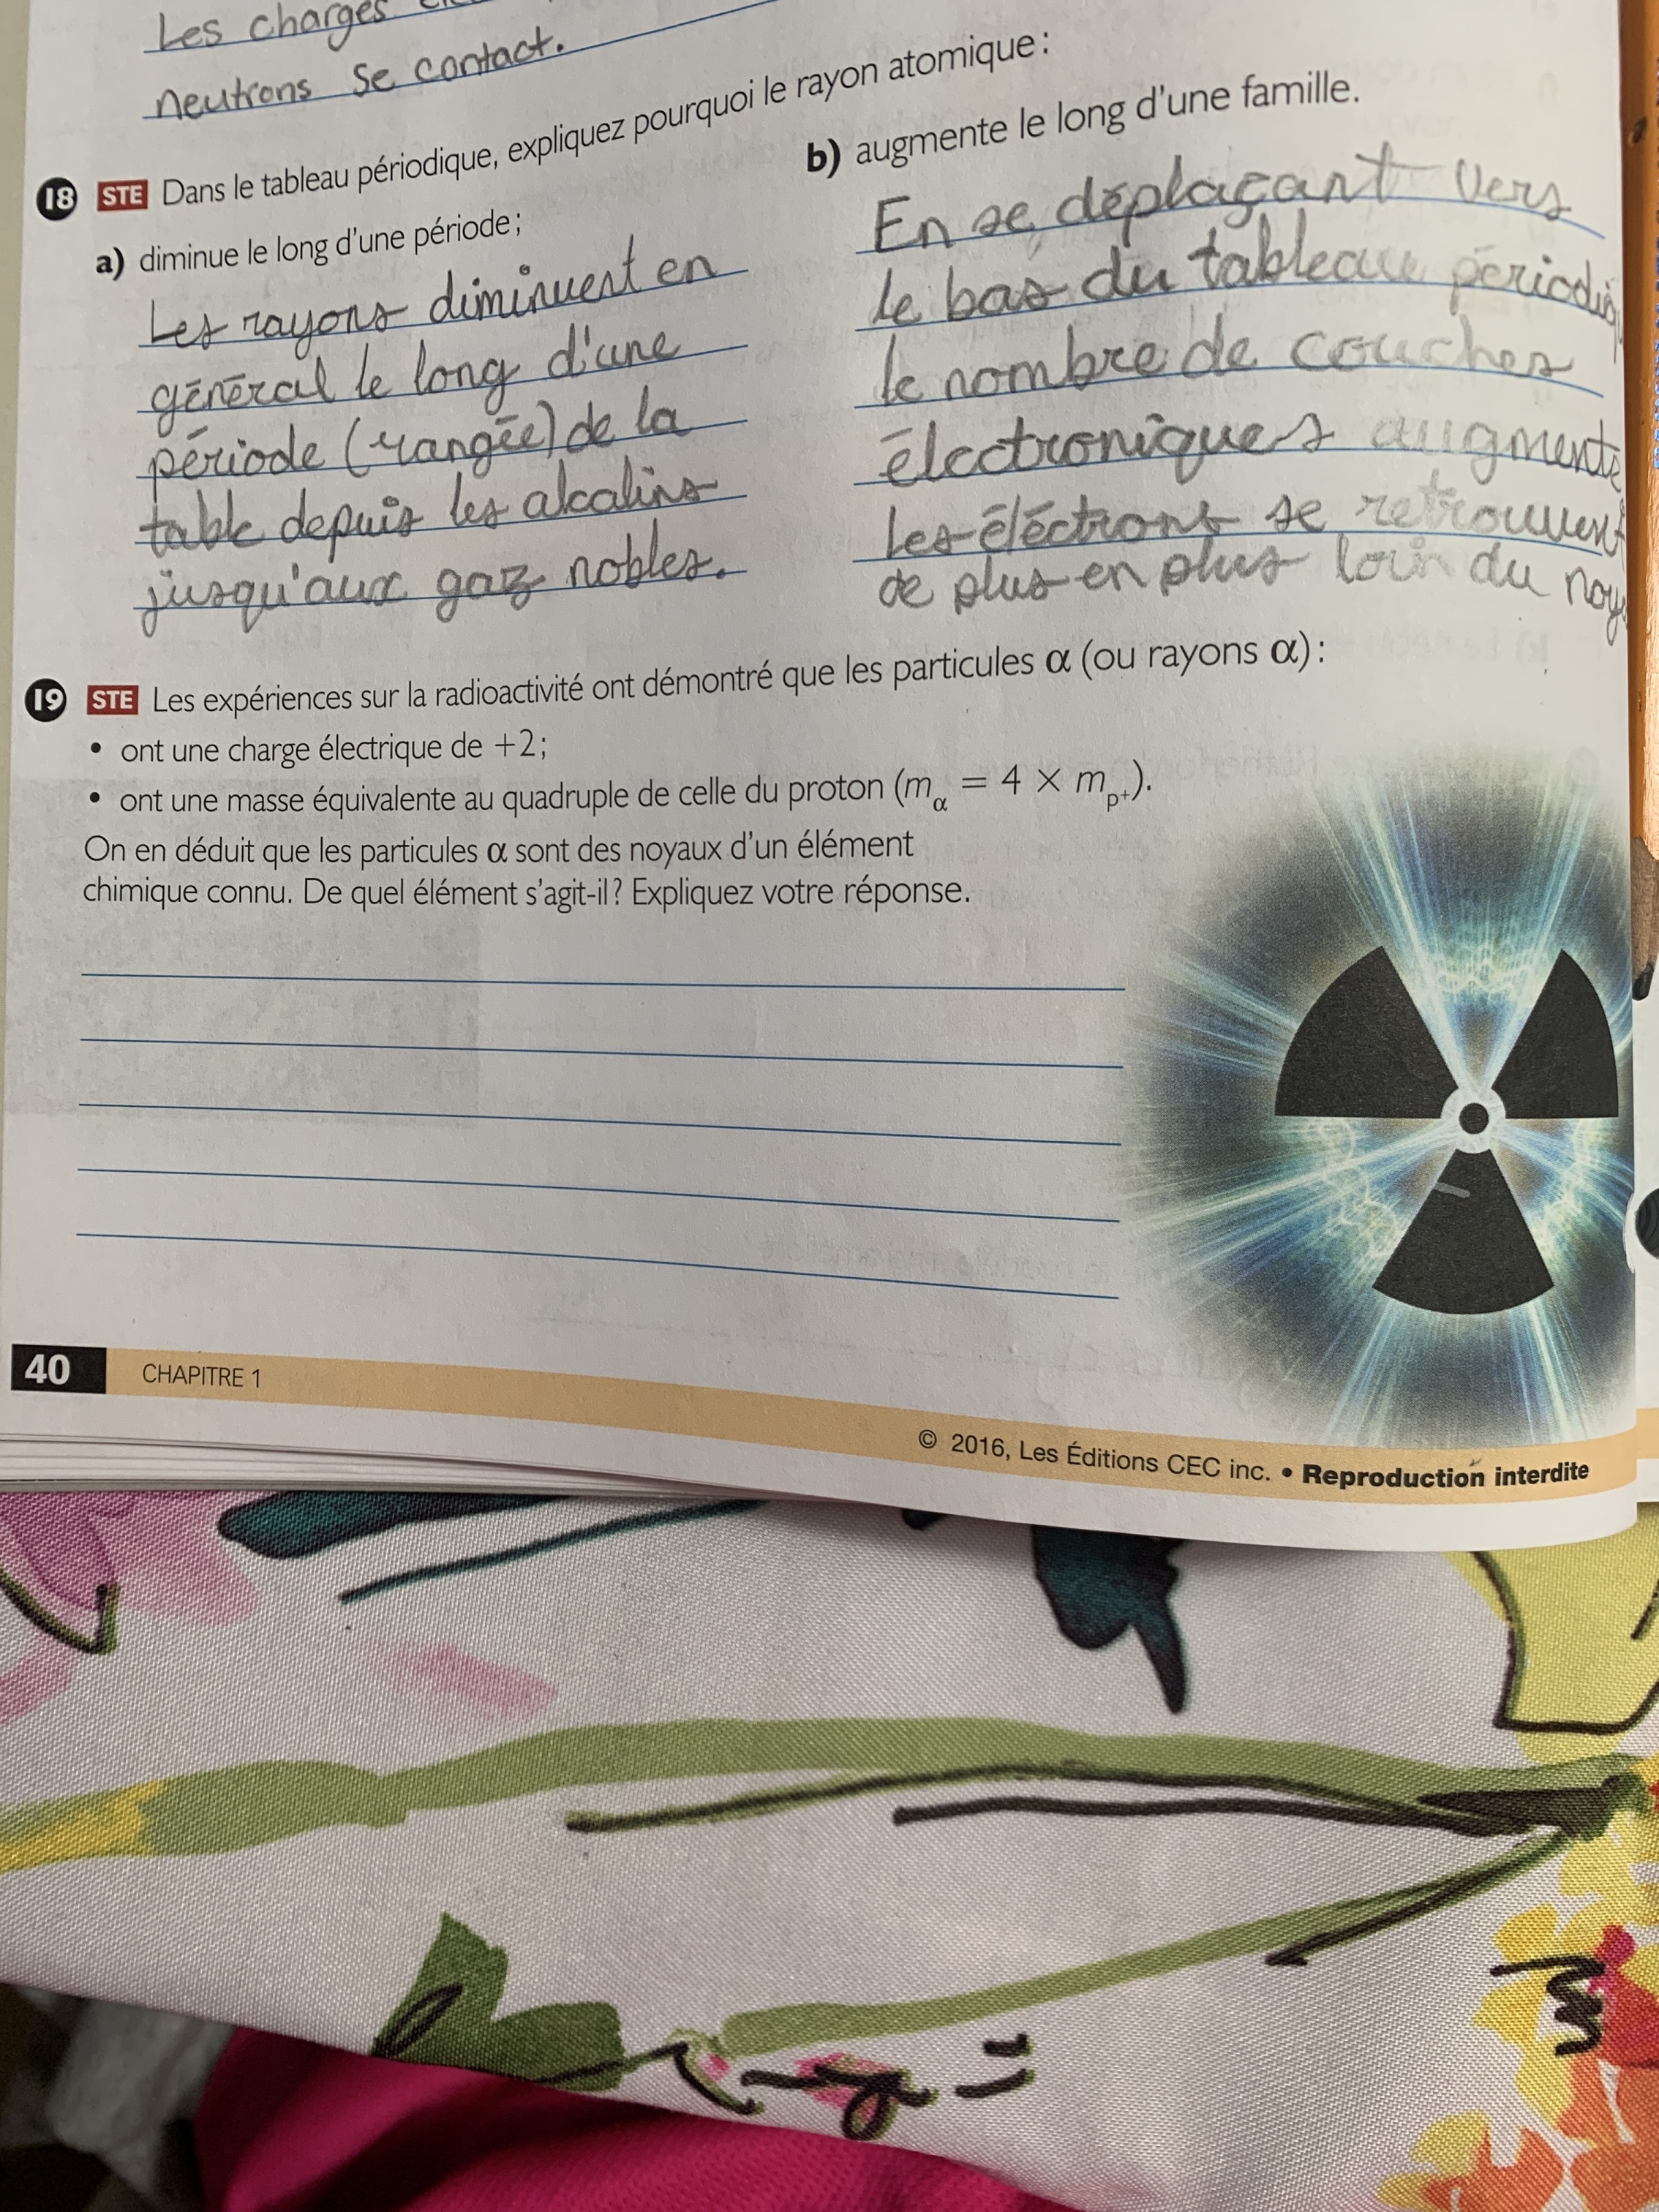 Les charges
neutrons se contact.
18 STE Dans le tableau périodique, expliquez pourquoi le rayon atomique :
a) diminue le long d'une période ;
Les rayons diminuent en
général le long d'une
période (rangée) de la
table depuis les alcalins
jusqu'aux gaz nobles.
b) augmente le long d'une famille.
En se déplaçant vers
le bas du tableau périodiq
le nombre de couches
électroniques augmente
Les éléctrons se retrouvent
de plus en plus loin du noy
19 STE Les expériences sur la radioactivité ont démontré que les particules α (ou rayons α) :
• ont une charge électrique de +2 ;
• ont une masse équivalente au quadruple de celle du proton (mα = 4 × mp+).
On en déduit que les particules α sont des noyaux d'un élément
chimique connu. De quel élément s'agit-il ? Expliquez votre réponse.
40 CHAPITRE 1
© 2016, Les Éditions CEC inc. • Reproduction interdite